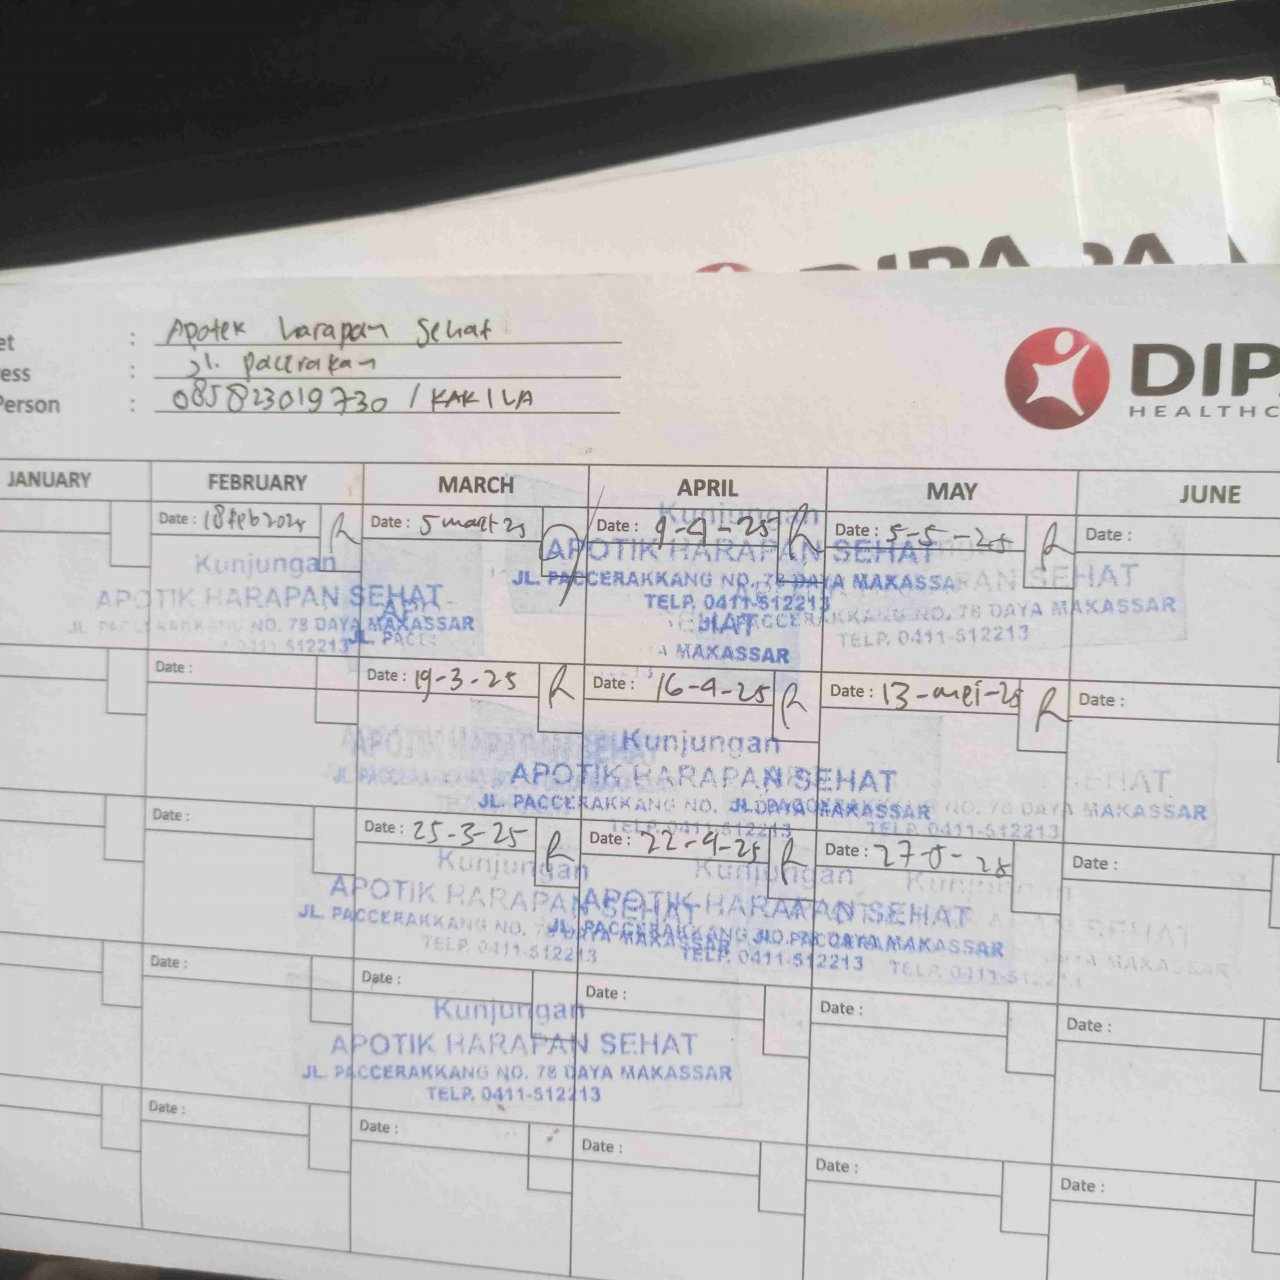 DIPA
et : Apotek harapan Sehat
ess : Jl. paccerakan
Person : 085823019730 / KAKILA
DIP
HEALTHC
JANUARY FEBRUARY MARCH APRIL MAY JUNE
Date : 18 feb 2025 Date : 5 maret 25 Date : 9-4-25 Date : 5-5-25 Date :
Kunjungan
APOTIK HARAPAN SEHAT
JL. PACCERAKKANG NO. 78 DAYA MAKASSAR
TELP. 0411-512213
Kunjungan
APOTIK HARAPAN SEHAT
JL. PACCERAKKANG NO. 78 DAYA MAKASSAR
512213
SEHAT
PACCERAKKANG NO. 78 DAYA MAKASSAR
TELP. 0411-512213
MAKASSAR
Date : Date : 19-3-25 Date : 16-4-25 Date : 13-mei-25 Date :
Kunjungan
APOTIK HARAPAN SEHAT
JL. PACCERAKKANG NO. DAYA MAKASSAR
0411-512213
SEHAT
NO. 78 DAYA MAKASSAR
TELP. 0411-512213
Date : Date : 25-3-25 Date : 22-4-25 Date : 27-5-25 Date :
Kunjungan
APOTIK HARAPAN SEHAT
JL. PACCERAKKANG NO. DAYA MAKASSAR
TELP. 0411-512213
Kunjungan
APOTIK HARAPAN SEHAT
JL. PACCERAKKANG NO. DAYA MAKASSAR
TELP. 0411-512213
MAKASSAR
TELP. 0411-512213
Date : Date : Date : Date : Date :
Kunjungan
APOTIK HARAPAN SEHAT
JL. PACCERAKKANG NO. 78 DAYA MAKASSAR
TELP. 0411-512213
Date : Date : Date : Date : Date :